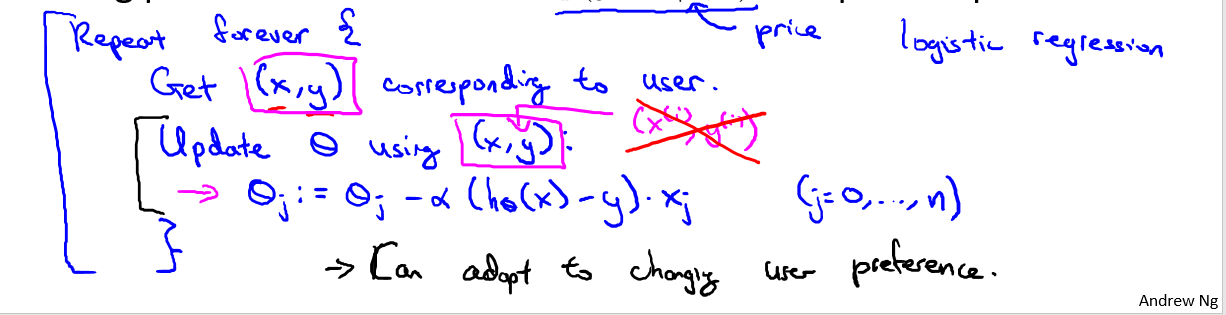 price logistic regression
Repeat forever {
Get (x,y) corresponding to user.
Update θ using (x,y): (x⁽ⁱ⁾,y⁽ⁱ⁾)
→ θⱼ := θⱼ - α (hθ(x) - y) · xⱼ (j=0,...,n)
}
→ Can adapt to changing user preference.
Andrew Ng